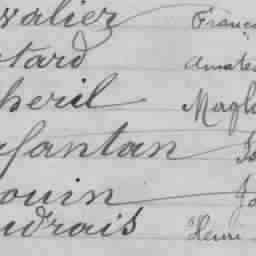 valier Franç
tard Amate
heril Magl
fantan
ouin
udrais Henri